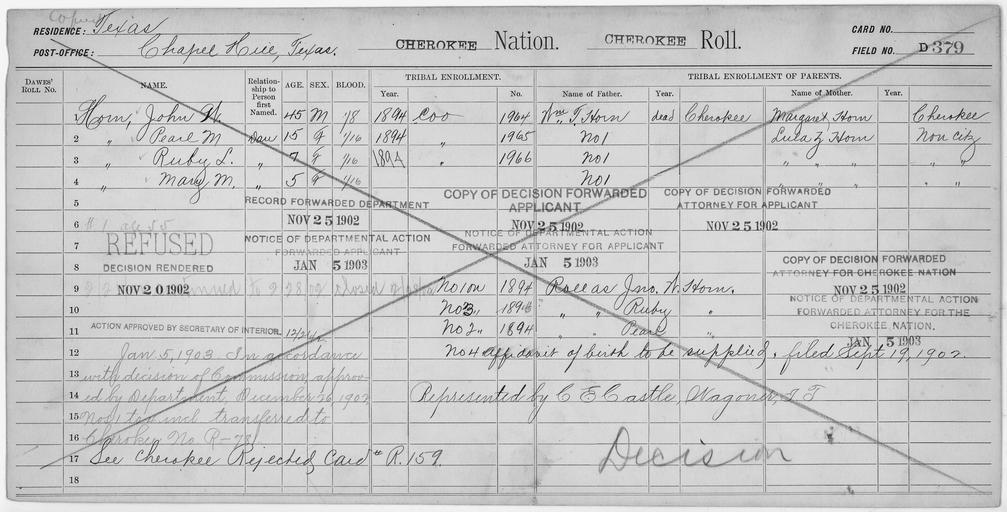 Copied
RESIDENCE: Texas
POST-OFFICE: Chapel Hill, Texas.
CHEROKEE Nation.
CHEROKEE Roll.
CARD NO.
FIELD NO. D 379
DAWES' ROLL NO. NAME. Relationship to Person first Named. AGE. SEX. BLOOD. TRIBAL ENROLLMENT. Year. No. TRIBAL ENROLLMENT OF PARENTS. Name of Father. Year. Name of Mother. Year.
Horn, John W. 45 M 1/8 1894 Coo 1964 Wm. T. Horn dead Cherokee Margaret Horn Cherokee
2 " Pearl M Dau 15 F 1/16 1894 " 1965 No1 Lula Z Horn Non citz
3 " Ruby L. " 7 F 1/16 1894 " 1966 No1 " " " " "
4 " Mary M. " 5 F 1/16 No1 " " " " "
5 RECORD FORWARDED DEPARTMENT
NOV 25 1902
COPY OF DECISION FORWARDED APPLICANT
NOV 25 1902
COPY OF DECISION FORWARDED ATTORNEY FOR APPLICANT
NOV 25 1902
6 #1 age 55
7 REFUSED
8 DECISION RENDERED
NOV 20 1902
NOTICE OF DEPARTMENTAL ACTION
FORWARDED APPLICANT
JAN 5 1903
NOTICE OF DEPARTMENTAL ACTION
FORWARDED ATTORNEY FOR APPLICANT
JAN 5 1903
COPY OF DECISION FORWARDED
ATTORNEY FOR CHEROKEE NATION
NOV 25 1902
NOTICE OF DEPARTMENTAL ACTION
FORWARDED ATTORNEY FOR THE
CHEROKEE NATION.
JAN 5 1903
9 to 2/28/02 closed No1 on 1894 Roll as Jno. W. Horn.
10 No3 " 1894 " " Ruby "
11 ACTION APPROVED BY SECRETARY OF INTERIOR. No2 " 1894 " " Pearl "
12 Jan 5, 1903. In accordance No4 affidavit of birth to be supplied. filed Sept 19, 1902.
13 with decision of Commission approv-
14 ed by Department, December 26 1902 Represented by C E Castle, Wagoner, I T
15 Nos 1 to 4 incl. transferred to
16 Cherokee No. R-
17 See Cherokee Rejected Card # R.159.
Decision
18